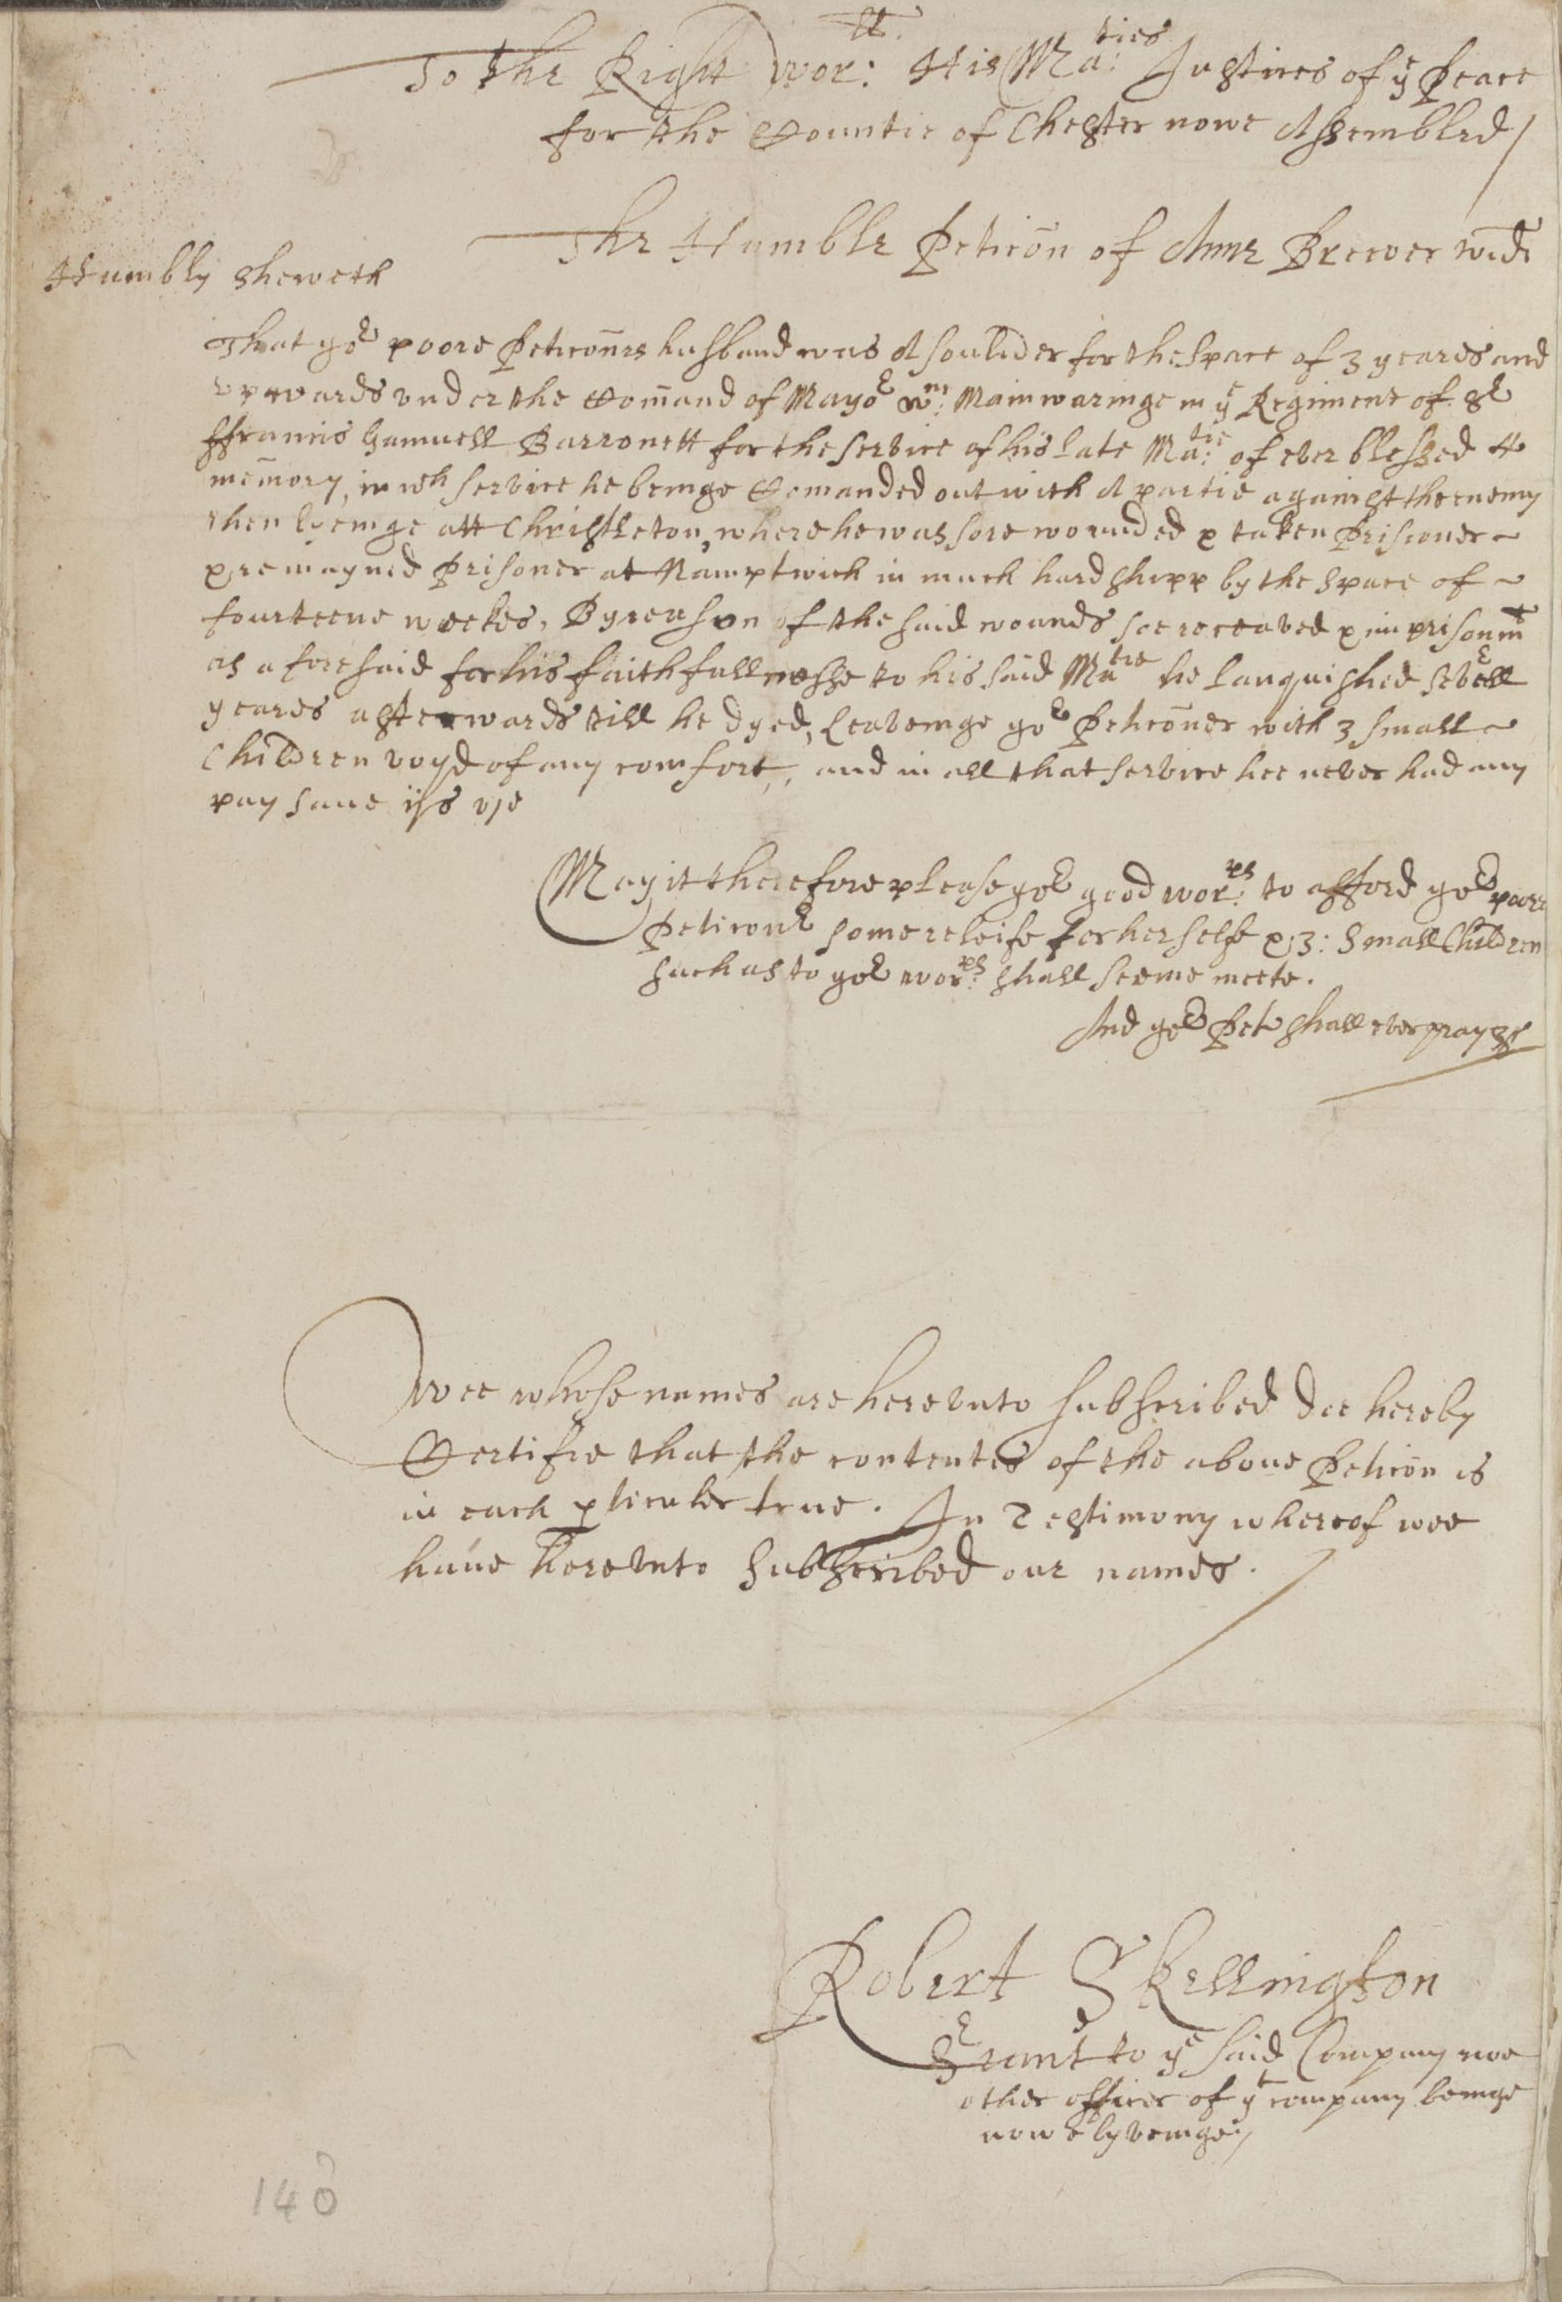 To the Right Wor:ll His Ma:ties Justices of ye Peace
for the Countie of Chester nowe Assembled /
The Humble Peticōn of Anne Breever wid
Humbly sheweth
That yor poore Peticōners husband was A souldier for the space of 3 yeares and
vpwards vnder the Com̄and of Mayor Wm: Mainwaringe in ye Regiment of Sr
ffrancis Gamuell Barronett for the service of his late Ma:tie of ever blessed
memory, in wch service he beinge Comanded out with A partie against the enemy
then lyeinge att Christleton, where he was sore wounded & taken Prisoner
& remayned Prisoner at Namptwich in much hardshipp by the space of
fourteene weekes, By reason of the said wounds soe receaved & imprisonmt
as aforesaid for his faithfullnesse to his said Matie he languished sevell
yeares afterwards till he dyed, Leaveinge yor Peticōner with 3 small
Children voyd of any comfort, and in all that service hee never had any
pay save ijs vjd
May it therefore please yor good wor:ps to afford yor poore
Peticonr some releife for her selfe & 3: small Children
such as to yor wor:ps shall seeme meete.
And yor Petr shall ever pray &c
Wee whose names are herevnto subscribed doe hereby
Certifie that the contentes of the above Peticōn is
in each pticuler true. In Testimony whereof wee
haue herevnto subscribed our names.
Robert Skellington
Sr̄iant to ye said Company noe
other officer of yt company beinge
nowe lyveinge /
140